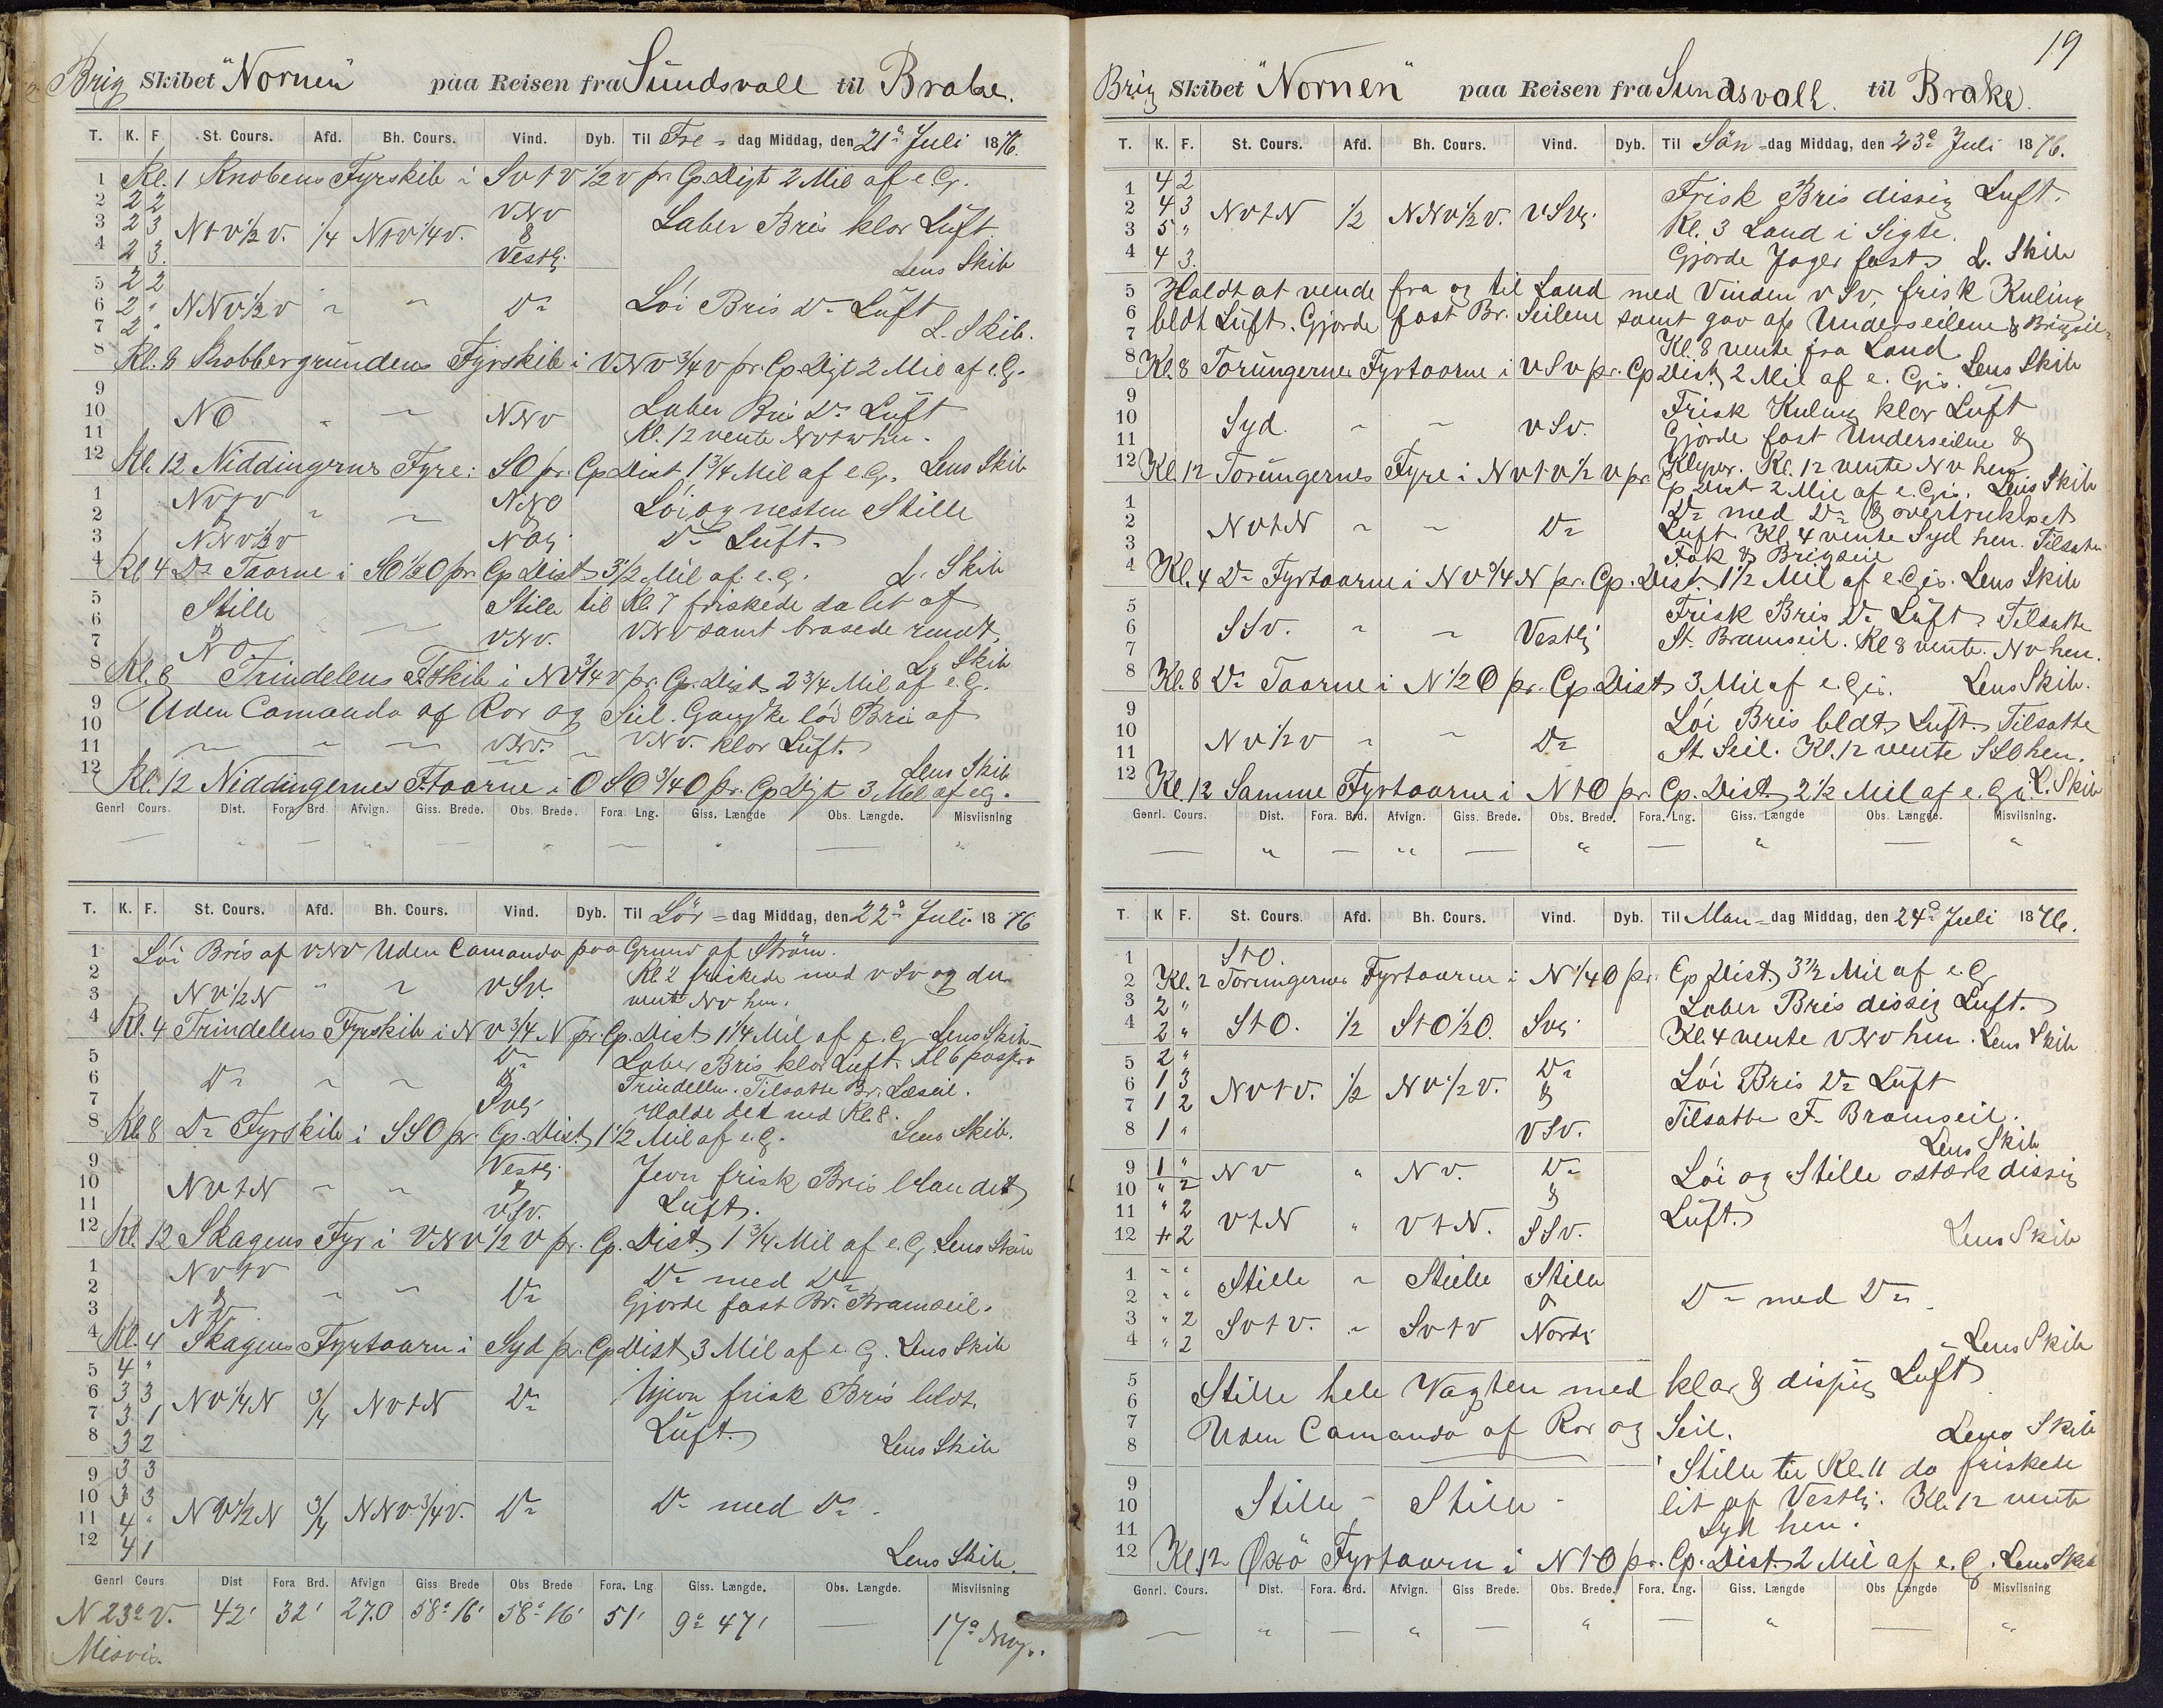 Brig Skibet "Nornen" paa Reisen fra Sundsvall til Brake.
T. K. F. St. Cours. Afd. Bh. Cours. Vind. Dyb. Til Fre- dag Middag, den 21de Juli 1876.
1 Kl. 1 Knobens Fyrskib i SvtV 1/2 v pr. Cp Digt 2 Mil af e. G.
2 2 2 VNv
3 2 3 Ntv 1/2 v. 1/4 Ntv 1/4 v. & Laber Bris klar Luft
4 2 3. Vestlj. Lens Skib
5 2 2
6 2 " NNv 1/2 v " " Do Löi Bris Do Luft
7 2 " L. Skib.
8 Kl. 8 Kobbergrundens Fyrskib i VNv 3/4 v pr. Cp. Digt 2 Mil af e. G.
9
10 NO " " NNv Laber Bris Do Luft
11 Kl. 12 vente hen.
12 Kl. 12 Niddingerne Fyre i SO pr. Cp Dist 1 3/4 Mil af e. G. Lens Skib
1 Nvtv NNO Löi og nesten Stille
2 " "
3 NNv 1/2 v NOlj Do Luft.
4 Kl 4 Do Taarne i SO 1/2 O pr. Cp Dist 3 1/2 Mil af e. G. L. Skib
5 Stille Stille til Kl. 7 friskede da lit af
6 & VNv. VNv samt brasede rundt.
7 NO
8 Kl. 8 Trindelens F.Skib i Nv 3/4 v pr. Cp. Dist 2 3/4 Mil af e. G. L. Skib
9 Uden Comando af Ror og Seil. Ganske löi Bris af
10
11 " " " VNv. VNv. klar Luft.
12 Kl. 12 Niddingernes F.taarne i OSO 3/4 O pr. Cp Digt 3 Mil af e G. Lens Skib
Genrl Cours. Dist. Fora Brd. Afvign. Giss. Brede. Obs. Brede. Fora. Lng. Giss. Længde Obs. Længde. Misviisning
— " — " — " — " — "
T. K. F. St. Cours. Afd. Bh. Cours. Vind. Dyb. Til Lör- dag Middag, den 22de Juli 1876
1 Löi Bris af VNV Uden Camando paa Grund af Ström.
2 Kl 2 friskede med vSv og du
3 NV 1/2 N " " vSv. vente Nv hen.
4 Kl. 4 Trindelens Fyrskib i Nv 3/4 N pr. Cp. Dist 1 1/4 Mil af e. G. Lens Skib
5 Do Laber Bris klar Luft. Kl 6
6 Do " " & Trindelen. Tilsatte Br. Læseil.
7 Svlj Halde det ned Kl. 8.
8 Kl. 8 Do Fyrskib i SSO pr. Cp. Dist 1 1/2 Mil af e. G. Lens Skib.
9 Vestlj
10 NvtN " " & Jevn frisk Bris blandet
11 vSv. Luft.
12 Kl. 12 Skagens Fyr i VNv 1/2 v pr. Cp. Dist. 1 3/4 Mil af e. G. Lens Skib
1 Nvtv Do med Do
2 & " " Do Gjorde fast Br. Bramseil.
3 NV
4 Kl. 4 Skagens Fyrtaarn i Syd pr. Cp Dist 3 Mil af e. G. Lens Skib
5 4 "
6 3 3 Nv 1/4 N 3/4 NvtN Do Ujevn frisk Bris bldt.
7 3 1 Luft.
8 3 2 Lens Skib
9 3 3
10 3 3
11 4 " NV 1/2 N 3/4 NNv 3/4 V. Do Do med Do.
12 4 1 Lens Skib.
Genrl Cours Dist Fora Brd. Afvign Giss Brede Obs Brede Fora. Lng Giss. Længde. Obs. Længde. Misviisning
N 23° V. 42' 32' 27.0 58° 16' 58° 16' 51' 9° 47' — 17°
Misvis.
19
Brig Skibet "Nornen" paa Reisen fra Sundsvall. til Brake.
T. K. F. St. Cours. Afd. Bh. Cours. Vind. Dyb. Til Sön- dag Middag, den 23de Juli 1876.
1 4 2 Frisk Bris dissig Luft.
2 4 3 NvtN 1/2 NNv 1/2 v. vSvlj. Kl. 3 Land i Sigte.
3 5 "
4 4 3. Gjorde Jager fast L. Skib
5 Holdt at vende fra og til Land med Vinden vSv, frisk Kuling
6 bldt Luft. Gjorde fast Br. Seilene samt gav op Underseilene & Brigseil
7 Kl. 8 vente fra Land
8 Kl. 8 Torungernes Fyrtaarne i VSv pr. Cp Dist 2 Mil af e. Gis. Lens Skib
9 Frisk Kuling klar Luft
10 Syd. " " vSv. Gjorde fast Underseilene &
11 Klyver. Kl. 12 vente Nv hen
12 Kl. 12 Torungernes Fyre i Nvtv 1/2 v pr. Cp Dist 2 Mil af e. Gis. Lens Skib
1 Do med Do & overtrukket
2 NvtN " " Do Luft Kl. 4 vente Syd hen. Tilsatte
3 Fok & Brigseil
4 Kl. 4 Do Fyrtaarne i Nv 3/4 N pr. Cp. Dist. 1 1/2 Mil af e. Gis. Lens Skib
5 Frisk Bris Do Luft Tilsatte
6 SSv. " " Vestlj St. Bramseil. Kl 8 vente Nv hen.
7
8 Kl. 8 Do Taarne i N 1/2 O pr. Cp. Dist 3 Mil af e. Gis. Lens Skib.
9 Löi Bris bldt Luft. Tilsatte
10 Nv 1/2 v " " Do St. Seil. Kl. 12 vente SSO hen.
11
12 Kl. 12 Samme Fyrtaarne i NtO pr. Cp. Dist 2 1/2 Mil af e. Gis. L. Skib
Genrl. Cours. Dist. Fora. Brd. Afvign. Giss. Brede. Obs. Brede. Fora. Lng. Giss. Længde Obs. Længde. Misviisning.
— " — " — " — " — "
T. K F. St. Cours. Afd. Bh. Cours. Vind. Dyb. Til Man- dag Middag, den 24de Juli 1876.
1 StO.
2 Kl. 2 Torungernes Fyrtaarne i N 1/4 O pr. Cp Dist 3 1/2 Mil af e. G
3 2 " Laber Bris dissig Luft.
4 2 " StO. 1/2 StO 1/2 O. Svlj Kl. 4 vente VNv hen. Lens Skib
5 2 " Do
6 1 3 Nvtv. 1/2 Nv 1/2 v. & Löi Bris Do Luft
7 1 2 Tilsatte F. Bramseil.
8 1 " VSv. Lens Skib
9 1 " Nv " Nv. Do Löi og Stille stærk dissig
10 " 2 &
11 " 2 VtN " VtN. SSv. Luft.
12 " 2 Lens Skib
1 " " Stille " Stille Stille
2 " " & Do med Do.
3 " 2 Svtv. " Svtv Nordlj
4 " 2 Lens Skib
5 Stille hele Vagten med klar & dissig Luft
6
7 Uden Camando af Ror og Seil. Lens Skib
8
9 Stille til Kl. 11 da friskede
10 Stille - Stille - lit af Vestlj. Kl. 12 vente
11 Syd hen.
12 Kl. 12 Oxö Fyrtaarn i NtO pr. Cp. Dist 2 Mil af e. G. Lens Skib
Genrl. Cours. Dist. Fora. Brd. Afvign. Giss Brede. Obs. Brede. Fora. Lng. Giss. Længde Obs Længde Misviisning
— " — " — " — " — "